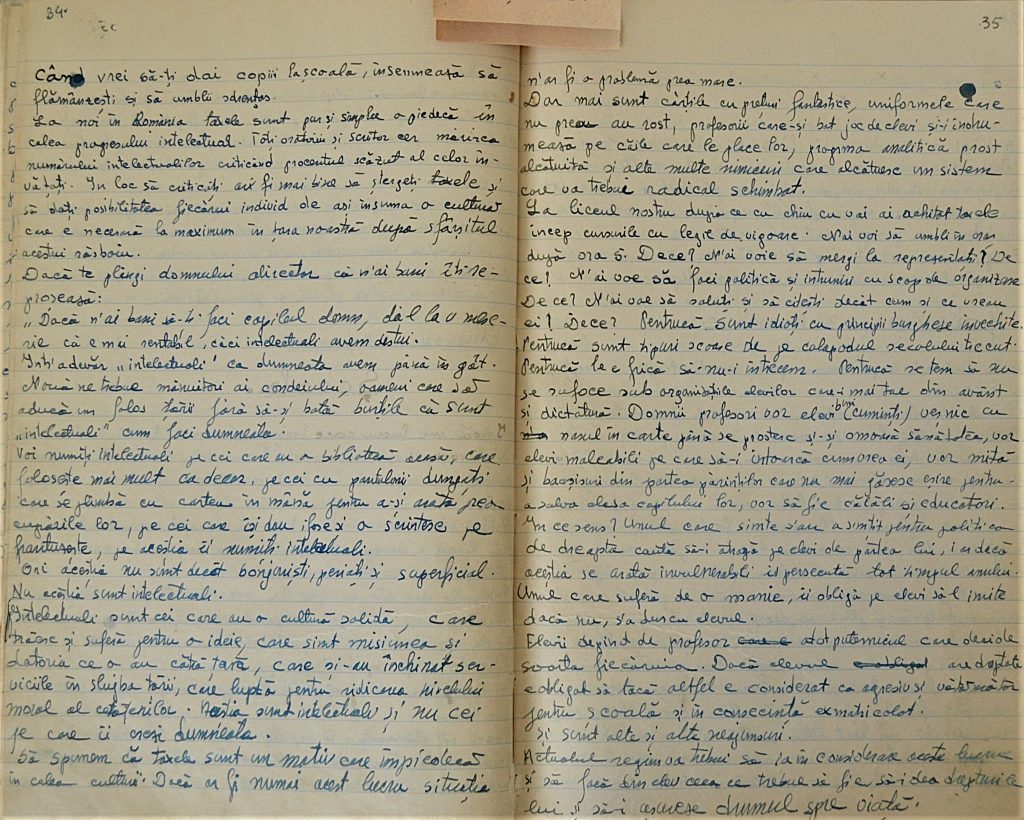 34.
Când vrei să-ți dai copiii la școală, însemnează să
flămânzești și să umbli zdrențos.
La noi în România taxele sunt pur și simplu o piedică în
calea progresului intelectual. Toți oratorii și scriitor cer mărirea
numărului intelectualilor criticând procentul scăzut al celor în-
vățați. În loc să criticați ar fi mai bine să ștergeți taxele și
să dați posibilitatea fiecărui individ de ași însuma o cultură
care e necesară la maximum în țara noastră după sfârșitul
acestui răsboiu.
Dacă te plângi domnului director că n'ai bani îți re-
proșează:
"Dacă n'ai bani să-ți faci copilul domn, dă-l la o mese-
rie că e mai rentabil, căci intelectuali avem destui.
Într'adevăr "intelectuali" ca dumneata avem până în gât.
Nouă ne trebue mânuitori ai condeiului, oameni care să
aducă un folos țării fără să-și bată burțile că sunt
"intelectuali" cum faci dumneata.
Voi numiți intelectuali pe cei care au o bibliotecă acasă, care
folosește mai mult ca decor, pe cei cu pantaloni dungați
care se plimbă cu cartea în mână pentru a-și arăta preo-
cupările lor, pe cei care își dau ifose și o scrântesc pe
franțuzește, pe aceștia îi numiți intelectuali.
Ori aceștia nu sunt decât bonjuriști, periați și superficial.
Nu aceștia sunt intelectuali.
Intelectuali sunt cei care au o cultură solidă, care
trăesc și suferă pentru o ideie, care simt misiunea și
datoria ce o au către țară, care și-au închinat ser-
viciile în slujba țării, care luptă pentru ridicarea nivelului
moral al cetățenilor. Aceștia sunt intelectuali și nu cei
pe care îi crezi dumneata.
Să spunem că taxele sunt un motiv care împiedecă
în calea culturii. Dacă ar fi numai acest lucru situația
35
n'ar fi o problemă prea mare.
Dar mai sunt cărțile cu prețuri fantastice, uniformele care
nu prea au rost, profesorii care-și bat joc de elevi și-i îndru-
mează pe căile care le place lor, programa analitică prost
alcătuită și alte multe nimicuri care alcătuesc un sistem
care va trebui radical schimbat.
La liceul nostru după ce cu chiu cu vai ai achitat taxele
încep cursurile cu legile de vigoare. N'ai voi să umbli în oraș
după ora 5. Dece? N'ai voie să mergi la reprezentații? De
ce? N'ai voe să faci politică și întruniri cu scop de organizare
Dece? N'ai voe să saluți și să citești decât cum și ce vreau
ei? Dece? Pentrucă sunt idioți cu principii burgheze învechite.
Pentrucă sunt tipuri scoase de pe calapodul secolului trecut.
Pentrucă le e frică să nu-i întrecem. Pentrucă se tem să nu
se sufoce sub organizațiile elevilor care-i mai tae din avânt
și dictatură. Domnii profesori vor elevi buni (cuminți) veșnic cu
nasul în carte până se prostesc și-și omoară sănătatea, vor
elevi maleabili pe care să-i întoarcă cum vrea ei, vor mită
și bacșișuri din partea părinților care nu mai găsesc eșire pentru-
a salva clasa copilului lor, vor să fie călăi și educatori.
În ce sens? Unul care simte s'au a simțit pentru politica
de dreapta caută să-i atragă pe elevi de partea lui, iar dacă
aceștia se arată invulnerabili îi persecută tot timpul anului.
Unul care suferă de o manie, îi obligă pe elevi să-l imite
dacă nu, s'a dus cu elevul.
Elevii depind de profesor care e atotputernicul care decide
soarta fiecăruia. Dacă elevul e obligat are dreptate
e obligat să tacă altfel e considerat ca agresiv și vătămător
pentru școală și în consecință exmatriculat.
Și sunt alte și alte neajunsuri.
Actualul regim va trebui să ia în considerare aceste lucruri
și să facă din elev ceea ce trebue să fie, să-i dea drepturile
lui și să-i așureze drumul spre viață.